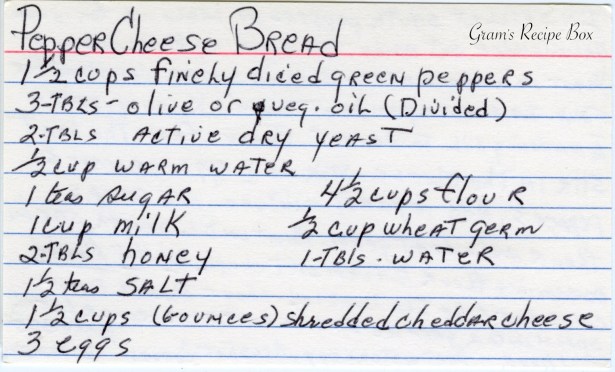 Pepper Cheese Bread
Gram's Recipe Box
1 1/2 cups finely diced green peppers
3-TBLS - olive or veg. oil (Divided)
2-TBLS Active dry yeast
1/2 cup warm water
1 teas sugar
4 1/2 cups flour
1 cup milk
1/2 cup wheat germ
2-TBLS honey
1-TBls. water
1 1/2 teas SALT
1 1/2 cups (6 ounces) shredded cheddar cheese
3 eggs